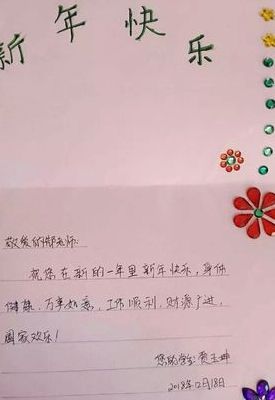 新年快乐
敬爱的邢老师:
祝您在新的一年里新年快乐,身体
健康、万事如意、工作顺利,财源广进,
阖家欢乐!
您的学生:贾玉坤
2018年12月18日